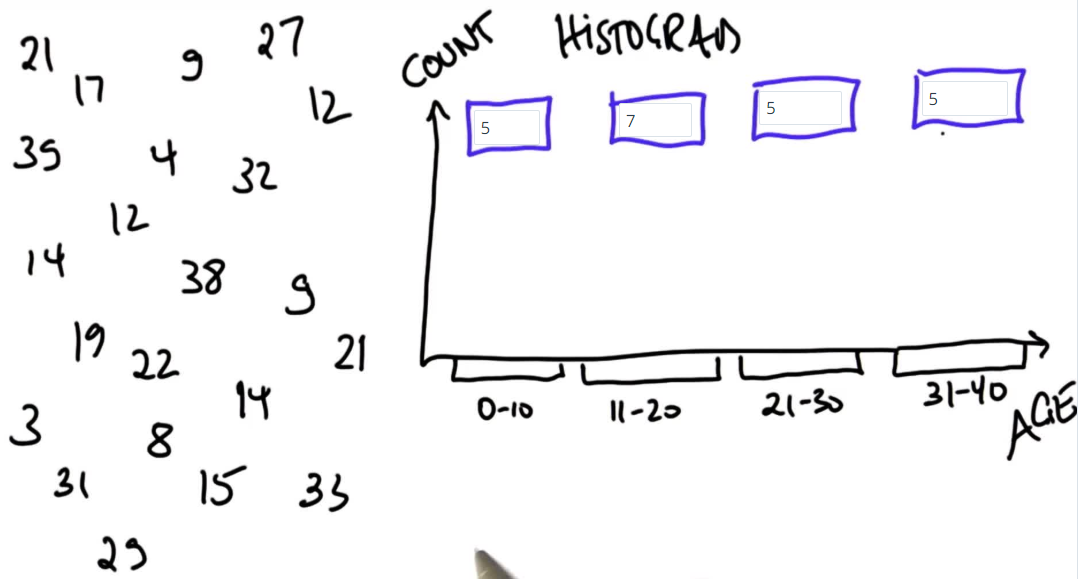 21
17
9
27
12
35
4
32
12
14
38
9
19
22
21
14
3
8
31
15
33
29
COUNT
HISTOGRAM
5
7
5
5
0-10
11-20
21-30
31-40
AGE